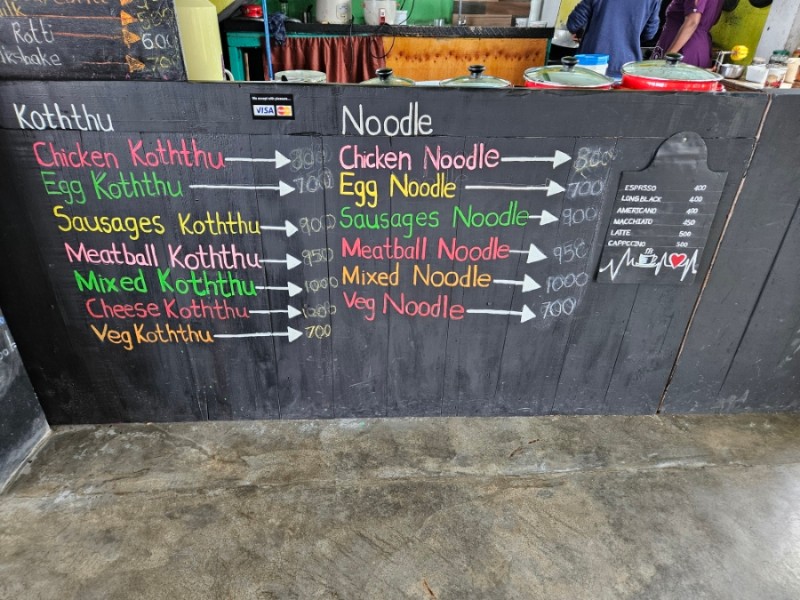 Rotti 600
Koththu
Chicken Koththu
Egg Koththu 700
Sausages Koththu 900
Meatball Koththu 950
Mixed Koththu 1000
Cheese Koththu 1200
Veg Koththu 700
We accept with pleasure...
VISA
Noodle
Chicken Noodle 800
Egg Noodle 700
Sausages Noodle 900
Meatball Noodle 950
Mixed Noodle 1000
Veg Noodle 700
ESPRESSO 400
LONG BLACK 400
AMERICANO 400
MACCHIATO 450
LATTE 500
CAPPCINO 500